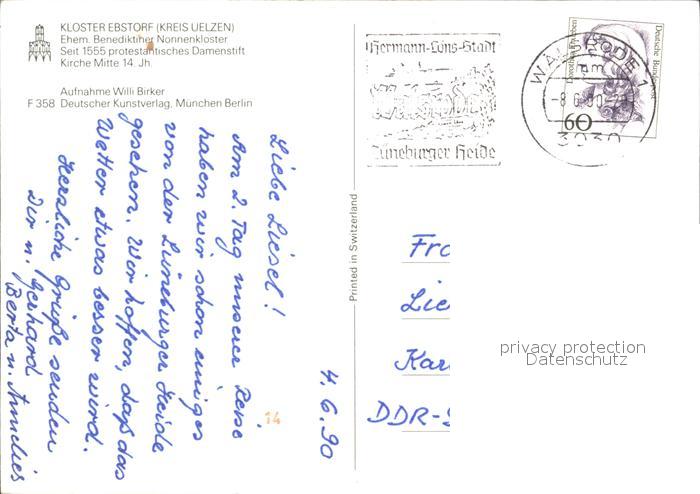 KLOSTER EBSTORF (KREIS UELZEN)
Ehem. Benediktiner Nonnenkloster
Seit 1555 protestantisches Damenstift
Kirche Mitte 14. Jh.
Aufnahme Willi Birker
F 358 Deutscher Kunstverlag, München Berlin
4.6.90
Liebe Liesel!
Am 2. Tag unserer Reise
haben wir schon einiges
von der Lüneburger Heide
gesehen. Wir hoffen, daß das
Wetter etwas besser wird.
Herzliche Grüße senden
Dir u. Gerhard
Berta u. Annelies
14
Printed in Switzerland
Hermann-Löns-Stadt
Walsrode
Lüneburger Heide
WALSRODE 1
-8.6.90
3030
Deutsche Bundespost
60
Fr
Lie
Kar
DDR-
privacy protection
Datenschutz